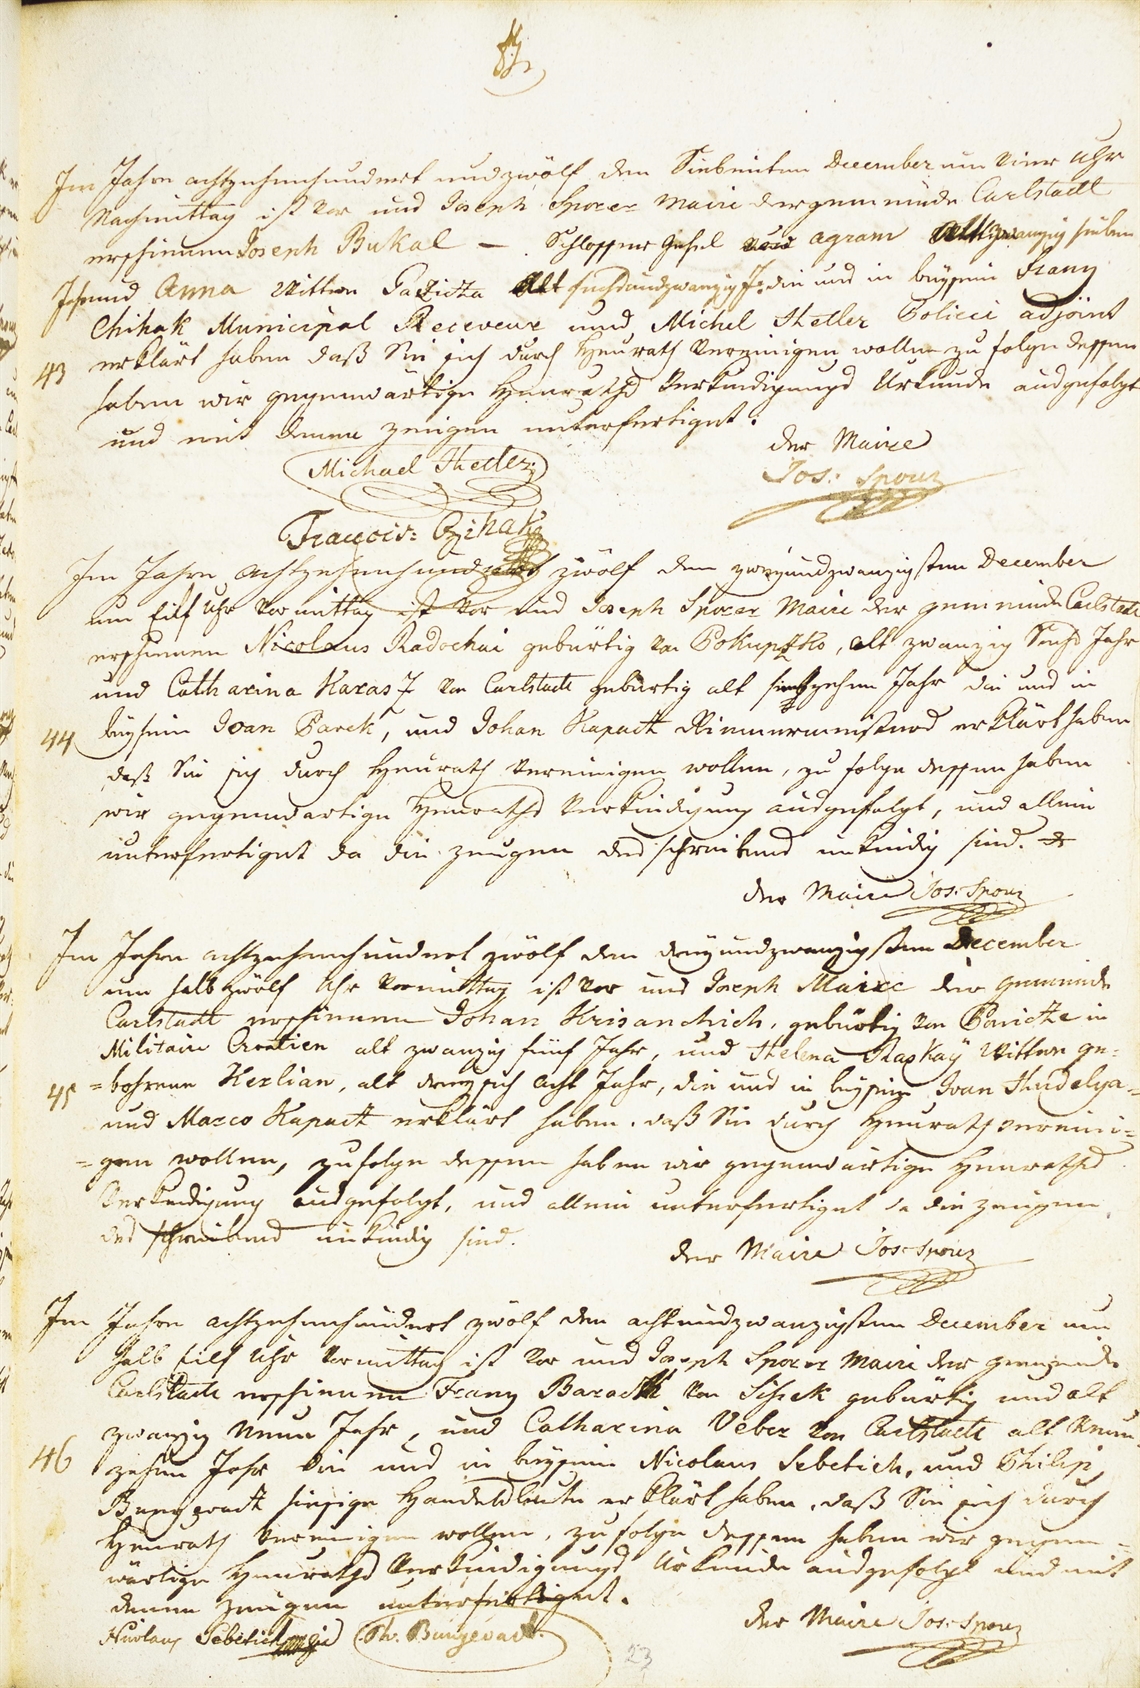 Im Jahre achtzehenhundert und zwölf den Siebenten December um Vier Uhr
Nachmittag ist vor uns Joseph Sporer Maire der gemeinde Carlstadt
erschienen Joseph Bukal — Schlosser Gesel aus Agram Alt zwanzig sieben
Jahr und Anna Wittwe Alt sechsundzwanzig J: die uns in beysein Franz
Chihak Municipal Receveur und Michel Steller Policei adjoint
43 erklärt haben daß Sie sich durch Heurath Vereinigen wollen zu folge dessen
haben wir gegenwärtige Heuraths Verkündigungs Urkunde ausgefolgt
und mit denen zeugen unterfertiget.
der Maire
Michael Steller
Jos: Sporer
Francois: Czihak
Im Jahre achtzehenhundert zwölf den zweyundzwanzigsten December
um Eilf Uhr Vormittag ist vor uns Joseph Sporer Maire der gemeinde Carlstadt
erschienen Nicolaus Radochai gebürtig von Pokupsko, alt zwanzig Sechs Jahr
und Catharina Karas von Carlstadt gebürtig alt Jahr die uns in
44 beysein Ivan Pavek, und Johan Kapactt erklärt haben
daß Sie sich durch Heurath Vereinigen wollen, zu folge dessen haben
wir gegenwärtige Heuraths Verkündigung ausgefolgt, und allein
unterfertiget da die zeugen des schreibens unkündig sind.
der Maire Jos: Sporer
Im Jahre achtzehenhundert zwölf den dreyundzwanzigsten December
um halb zwölf Uhr Vormittag ist vor uns Joseph Maire der gemeinde
Carlstadt erschienen Johan Krisanchich, gebürtig von in
Militair Croatien alt zwanzig fünf Jahr, und Helena Raskaÿ Wittwe ge-
45 =bohrene Kerlian, alt dreyssich acht Jahr, die uns in beysein Ivan
und Marco Kapactt erklärt haben. daß Sie durch Heurath vereini=
=gen wollen, zufolge dessen haben wir gegenwärtige Heuraths
Verkündigung ausgefolgt, und allein unterfertiget da die zeugen
des schreibens unkündig sind.
der Maire Jos: Sporer
Im Jahre achtzehenhundert zwölf den achtundzwanzigsten December um
halb Eilf Uhr Vormittag ist vor uns Joseph Sporer Maire der gemeinde
Carlstadt erschienen Franz Barach von Sissek gebürtig und alt
zwanzig Neun Jahr, und Catharina Veber von Carlstadt alt Neun
46 zehen Jahr die uns in beysein Nicolaus Sebetich, und Philip
hiesige Handelsleute erklärt haben, daß Sie sich durch
Heurath Vereinigen wollen, zu folge dessen haben wir gegen=
wärtige Heuraths Verkündigungs Urkunde ausgefolgt und mit
denen Zeugen unterfertiget.
der Maire Jos: Sporer
Nicolaus Sebetich
23